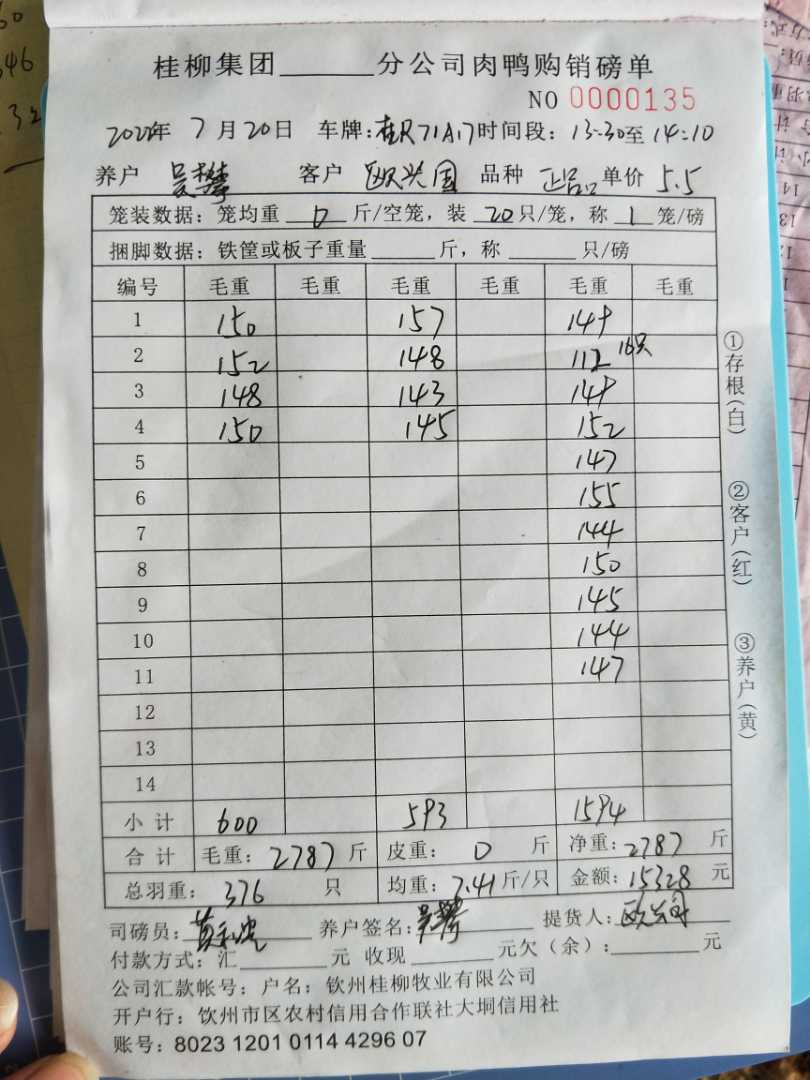 桂柳集团______分公司肉鸭购销磅单
NO 0000135
2022年 7月20日 车牌:桂R71A17时间段:13:30至14:10
养户 吴攀 客户 欧兴国 品种 正品 单价 5.5
笼装数据:笼均重 0 斤/空笼,装 20只/笼,称 1 笼/磅
捆脚数据:铁筐或板子重量______斤,称______只/磅
编号 毛重 毛重 毛重 毛重 毛重 毛重
1 150 157 149
2 152 148 112 16只
3 148 143 149
4 150 145 152
5 147
6 155
7 144
8 150
9 145
10 144
11 147
12
13
14
小计 600 593 1594
合计 毛重:2787斤 皮重:0 斤 净重:2787 斤
总羽重:376 只 均重:7.41斤/只 金额:15328 元
司磅员: 养户签名:吴攀 提货人:欧兴国
付款方式:汇______元 收现______元欠(余):______元
公司汇款帐号:户名:钦州桂柳牧业有限公司
开户行:钦州市区农村信用合作联社大垌信用社
账号:8023 1201 0114 4296 07
①存根(白)
②客户(红)
③养户(黄)